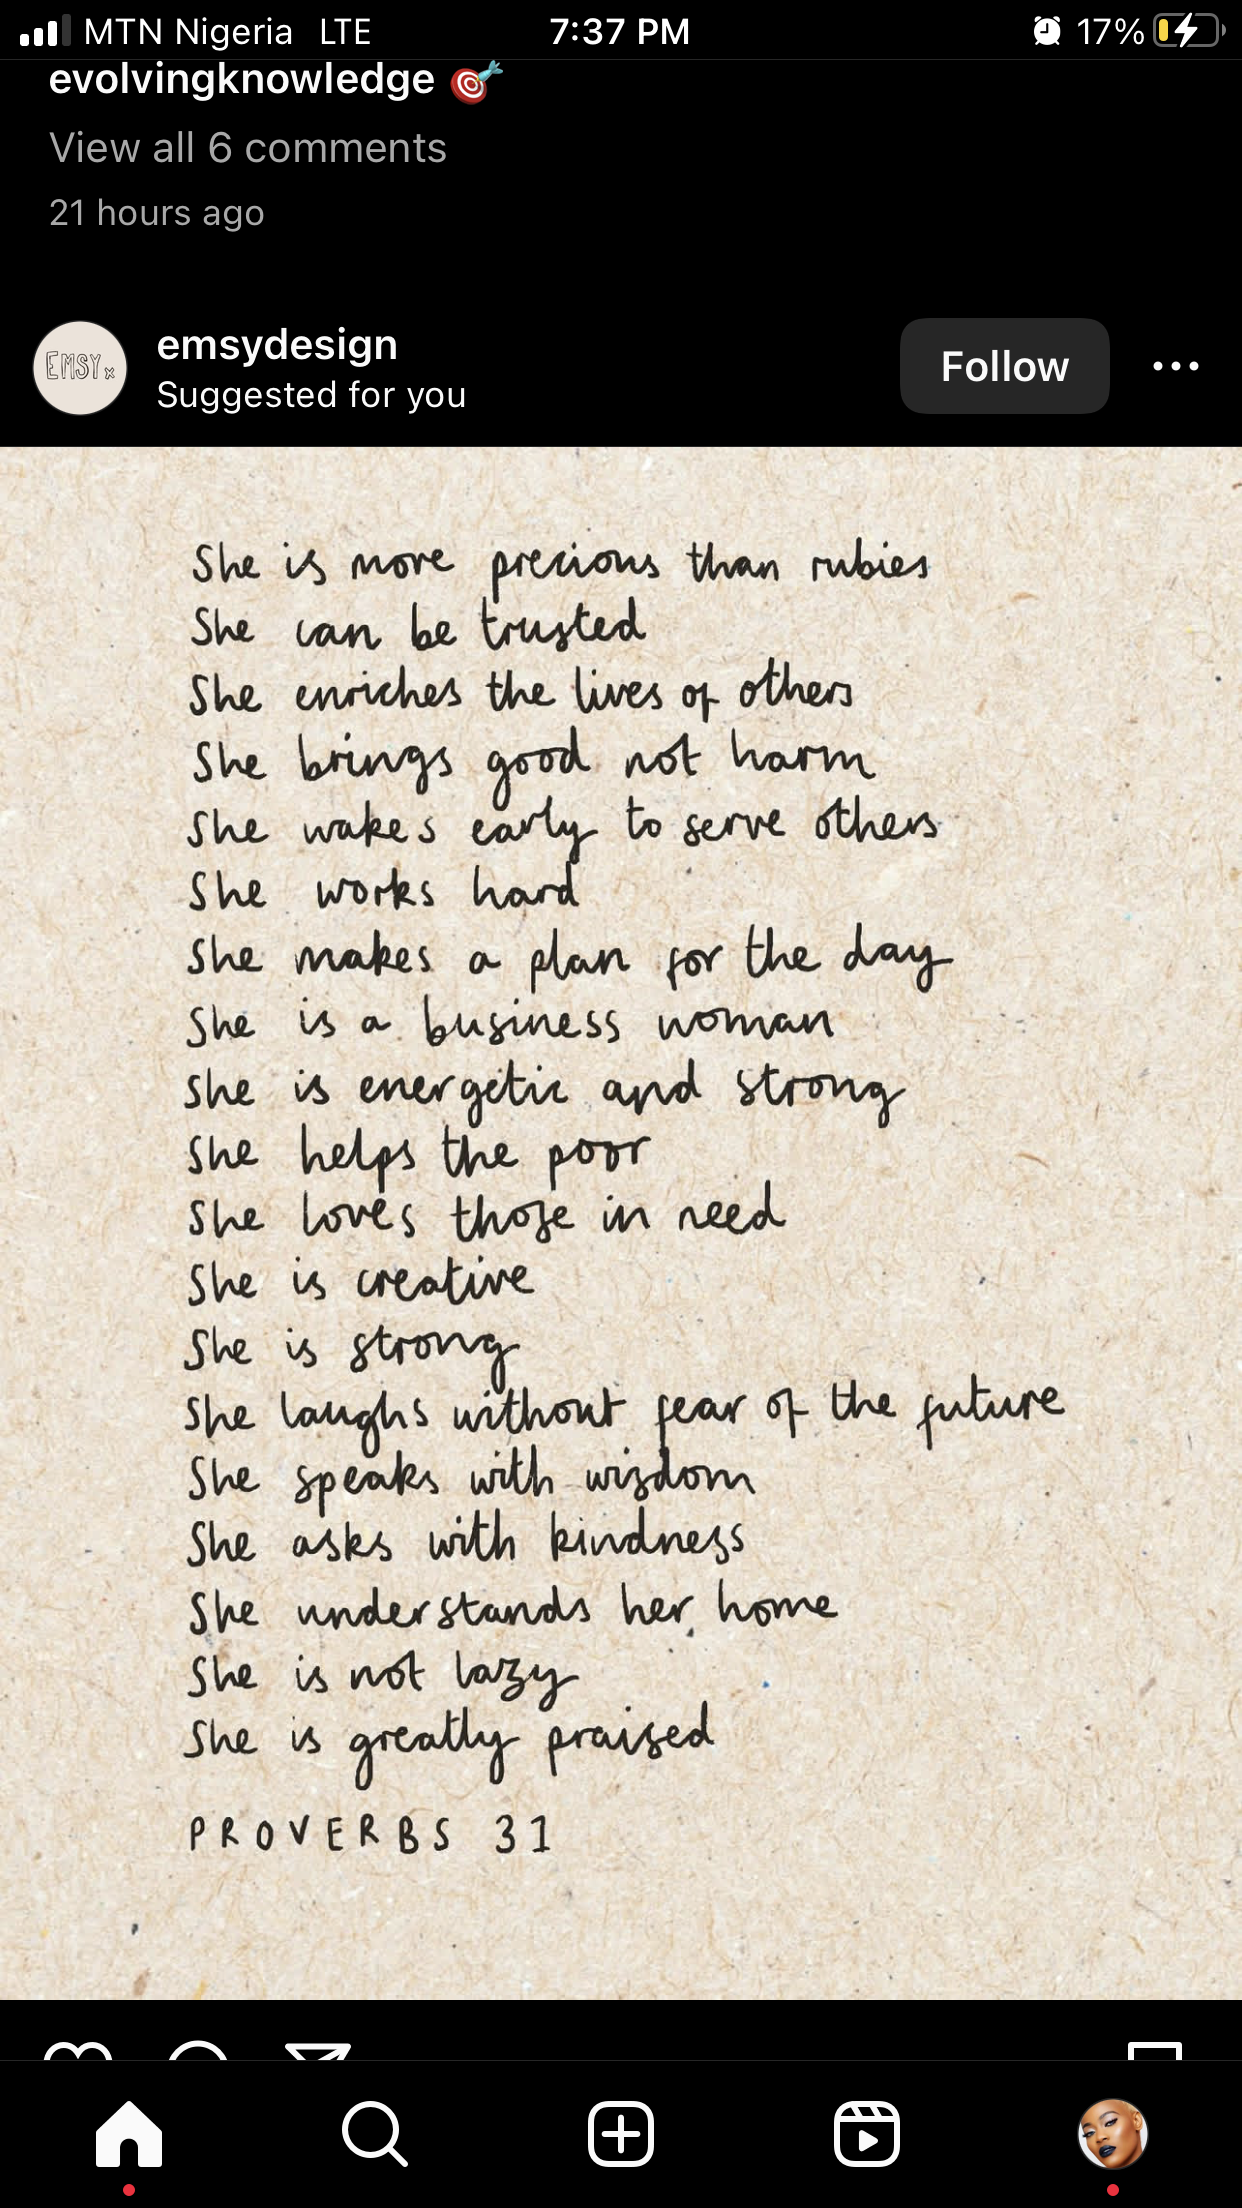 MTN Nigeria LTE 7:37 PM 17%
evolvingknowledge
View all 6 comments
21 hours ago
EMSY x
emsydesign
Suggested for you
Follow
She is more precious than rubies
She can be trusted
She enriches the lives of others
She brings good not harm
She wakes early to serve others
She works hard
She makes a plan for the day
She is a business woman
She is energetic and strong
She helps the poor
She loves those in need
She is creative
She is strong
She laughs without fear of the future
She speaks with wisdom
She asks with kindness
She understands her home
She is not lazy
She is greatly praised
PROVERBS 31